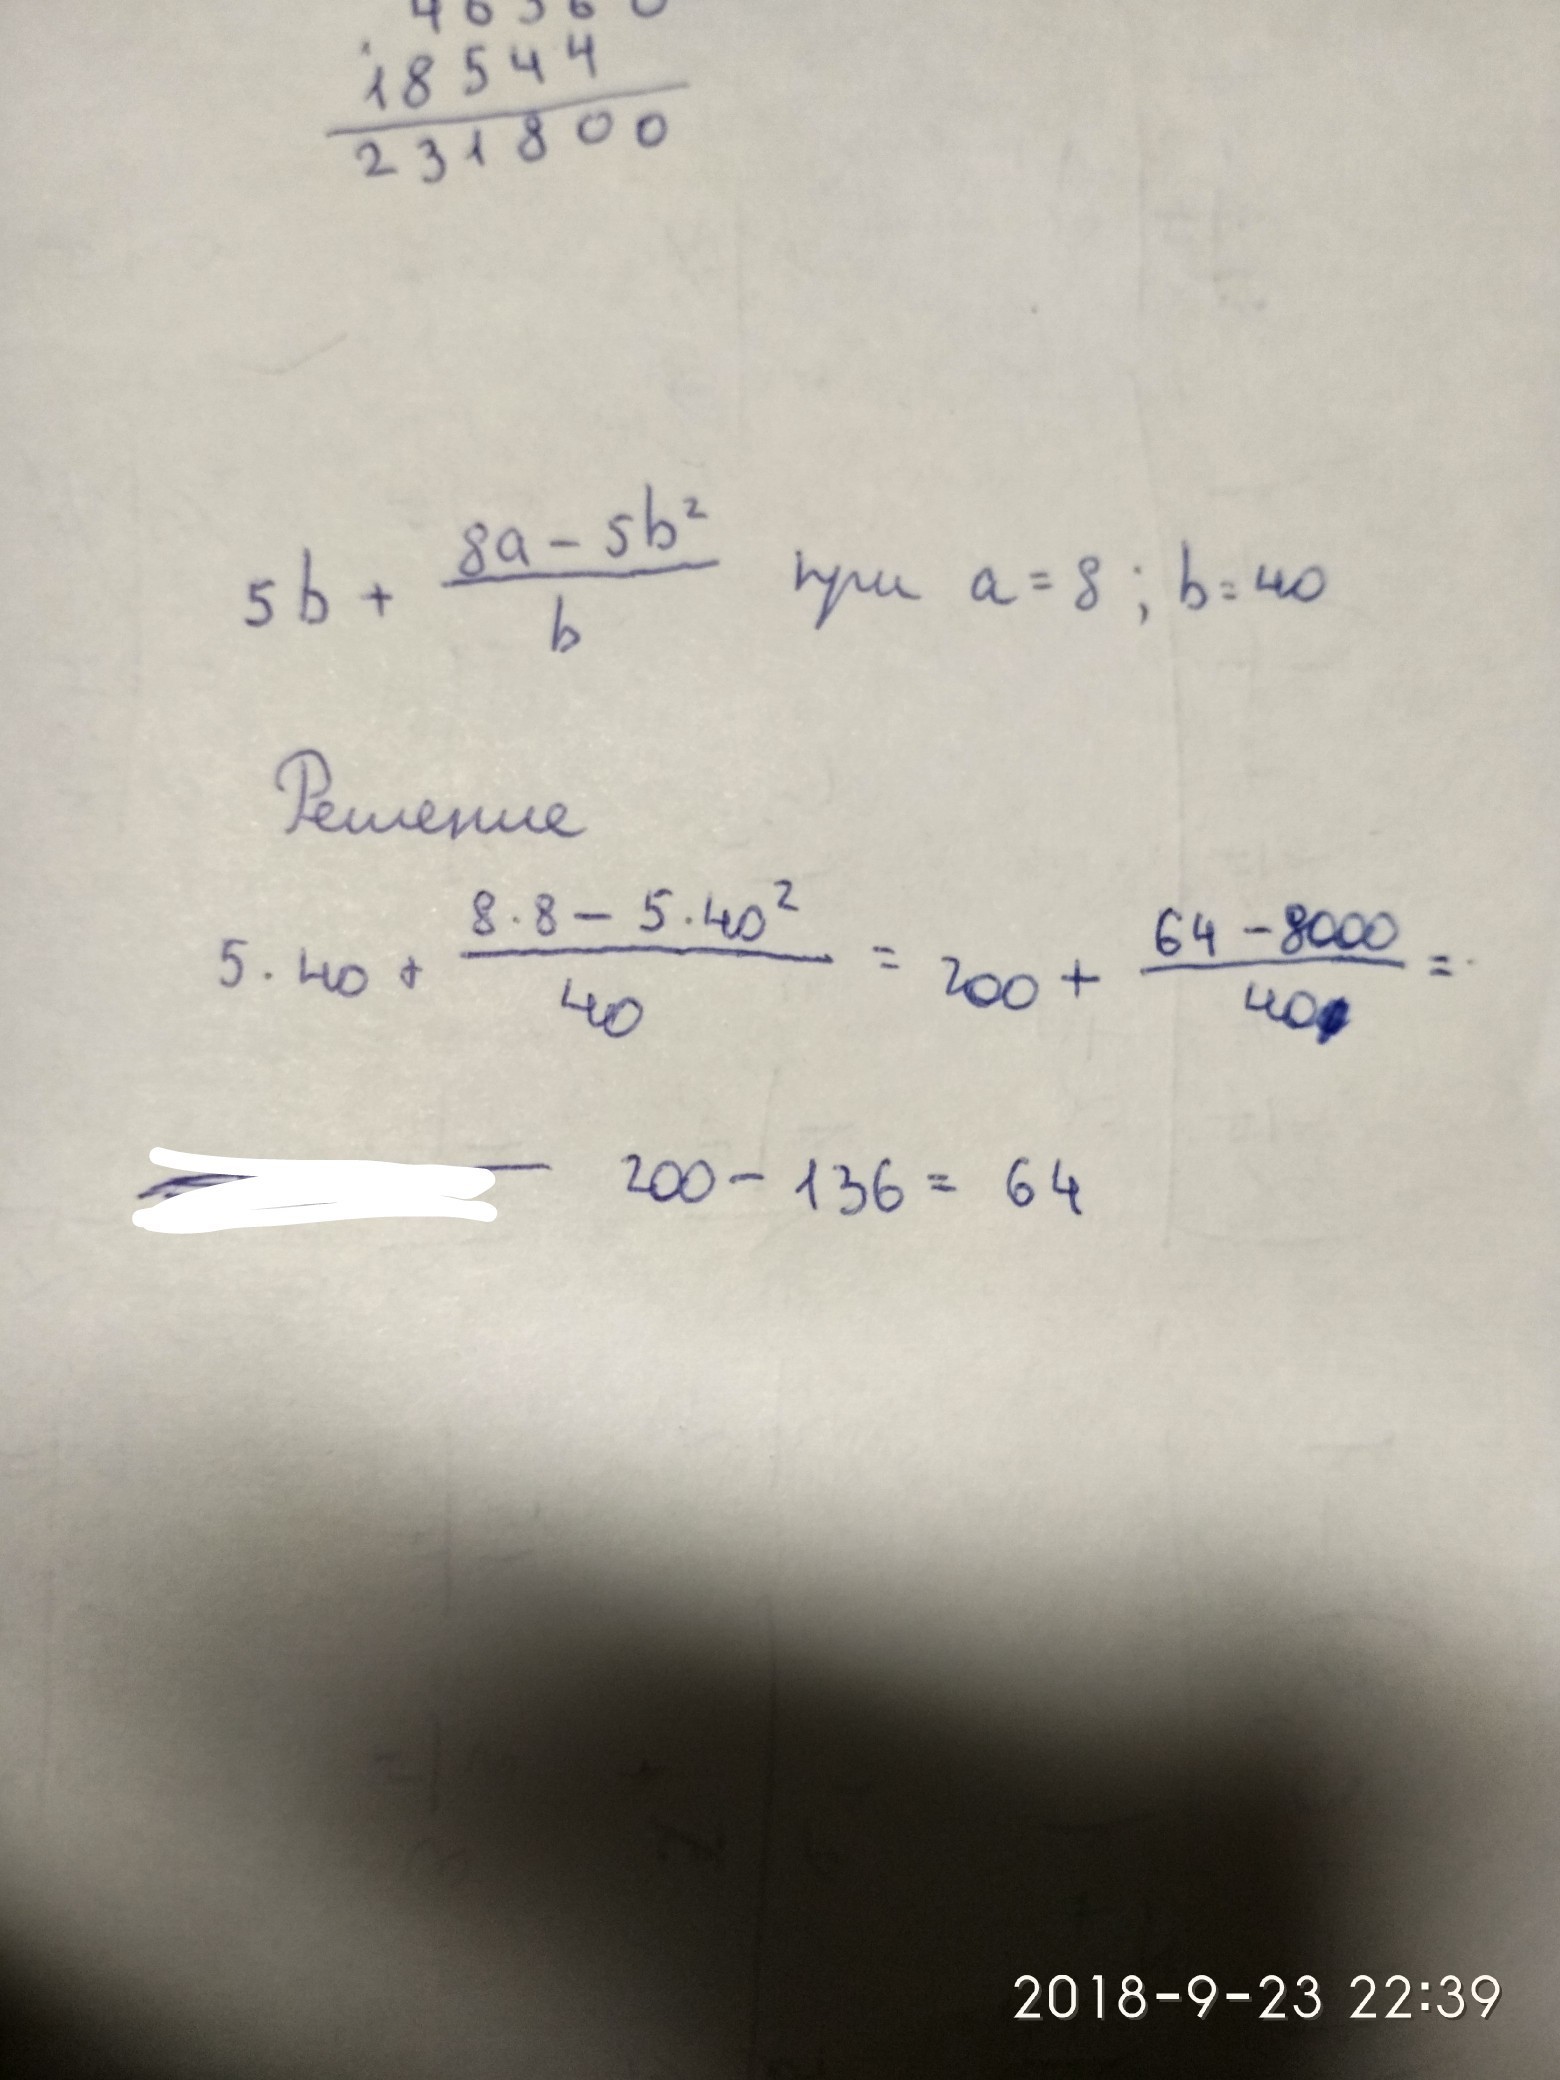 18544
231800
5b + \frac{8a - 5b²}{b} при a = 8 ; b = 40
Решение
5 · 40 + \frac{8 · 8 - 5 · 40²}{40} = 200 + \frac{64 - 8000}{40} =
200 - 136 = 64
2018-9-23 22:39